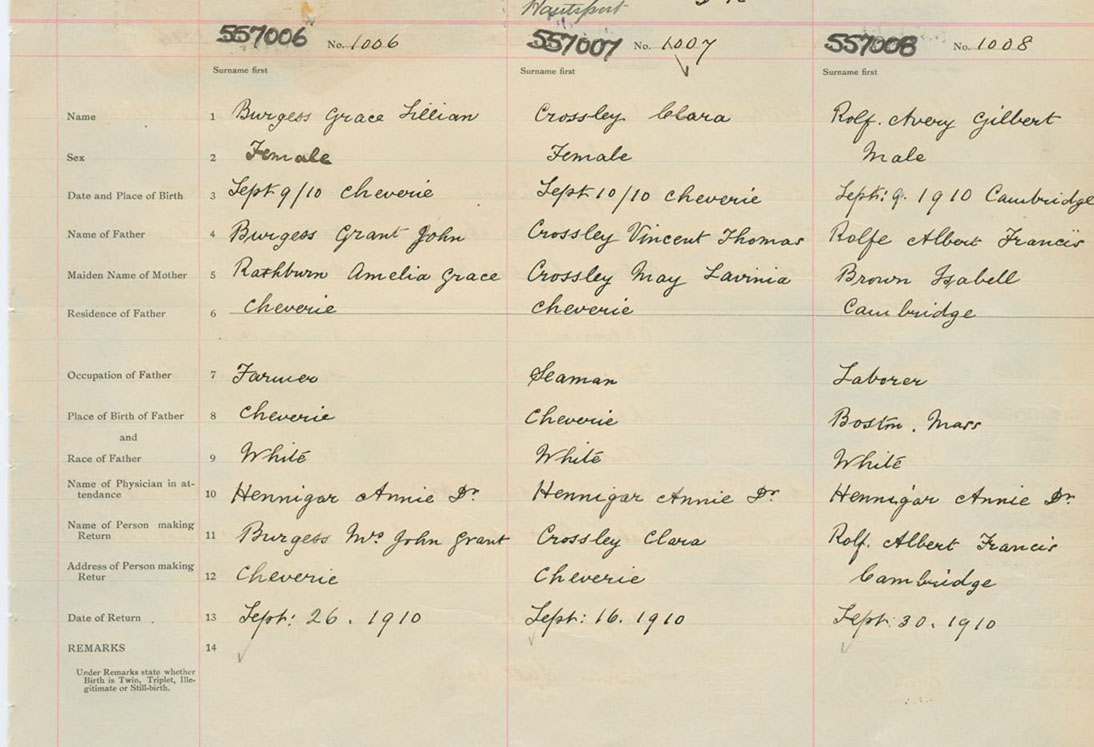 Hantsport
557006 No. 1006 557007 No. 1007 557008 No. 1008
Surname first Surname first Surname first
Name 1 Burgess Grace Lillian Crossley Clara Rolf. Avery Gilbert
Sex 2 Female Female Male
Date and Place of Birth 3 Sept 9/10 Cheverie Sept 10/10 Cheverie Sept: 9. 1910 Cambridge
Name of Father 4 Burgess Grant John Crossley Vincent Thomas Rolfe Albert Francis
Maiden Name of Mother 5 Rathburn Amelia Grace Crossley May Lavinia Brown Isabell
Residence of Father 6 Cheverie Cheverie Cambridge
Occupation of Father 7 Farmer Seaman Laborer
Place of Birth of Father 8 Cheverie Cheverie Boston. Mass
and
Race of Father 9 White White White
Name of Physician in at-
tendance 10 Hennigar Annie Dr Hennigar Annie Dr. Hennigar Annie Dr.
Name of Person making
Return 11 Burgess Mrs John Grant Crossley Clara Rolf. Albert Francis
Address of Person making
Retur 12 Cheverie Cheverie Cambridge
Date of Return 13 Sept: 26. 1910 Sept: 16. 1910 Sept. 30. 1910
REMARKS 14
Under Remarks state whether
Birth is Twin, Triplet, Ille-
gitimate or Still-birth.